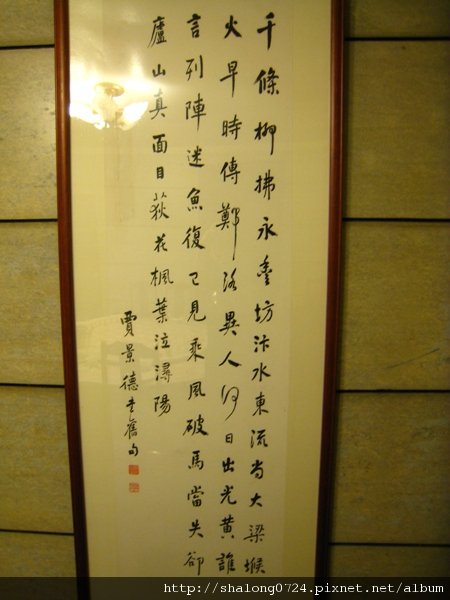 千條柳拂永豐坊汴水東流尚大梁堠
火早時傳鄭洛異人何日出光黃誰
言列陣迷魚復已見乘風破馬當失卻
廬山真面目荻花楓葉泣潯陽
賈景德書舊句
http://shalong0724.pixnet.net/album